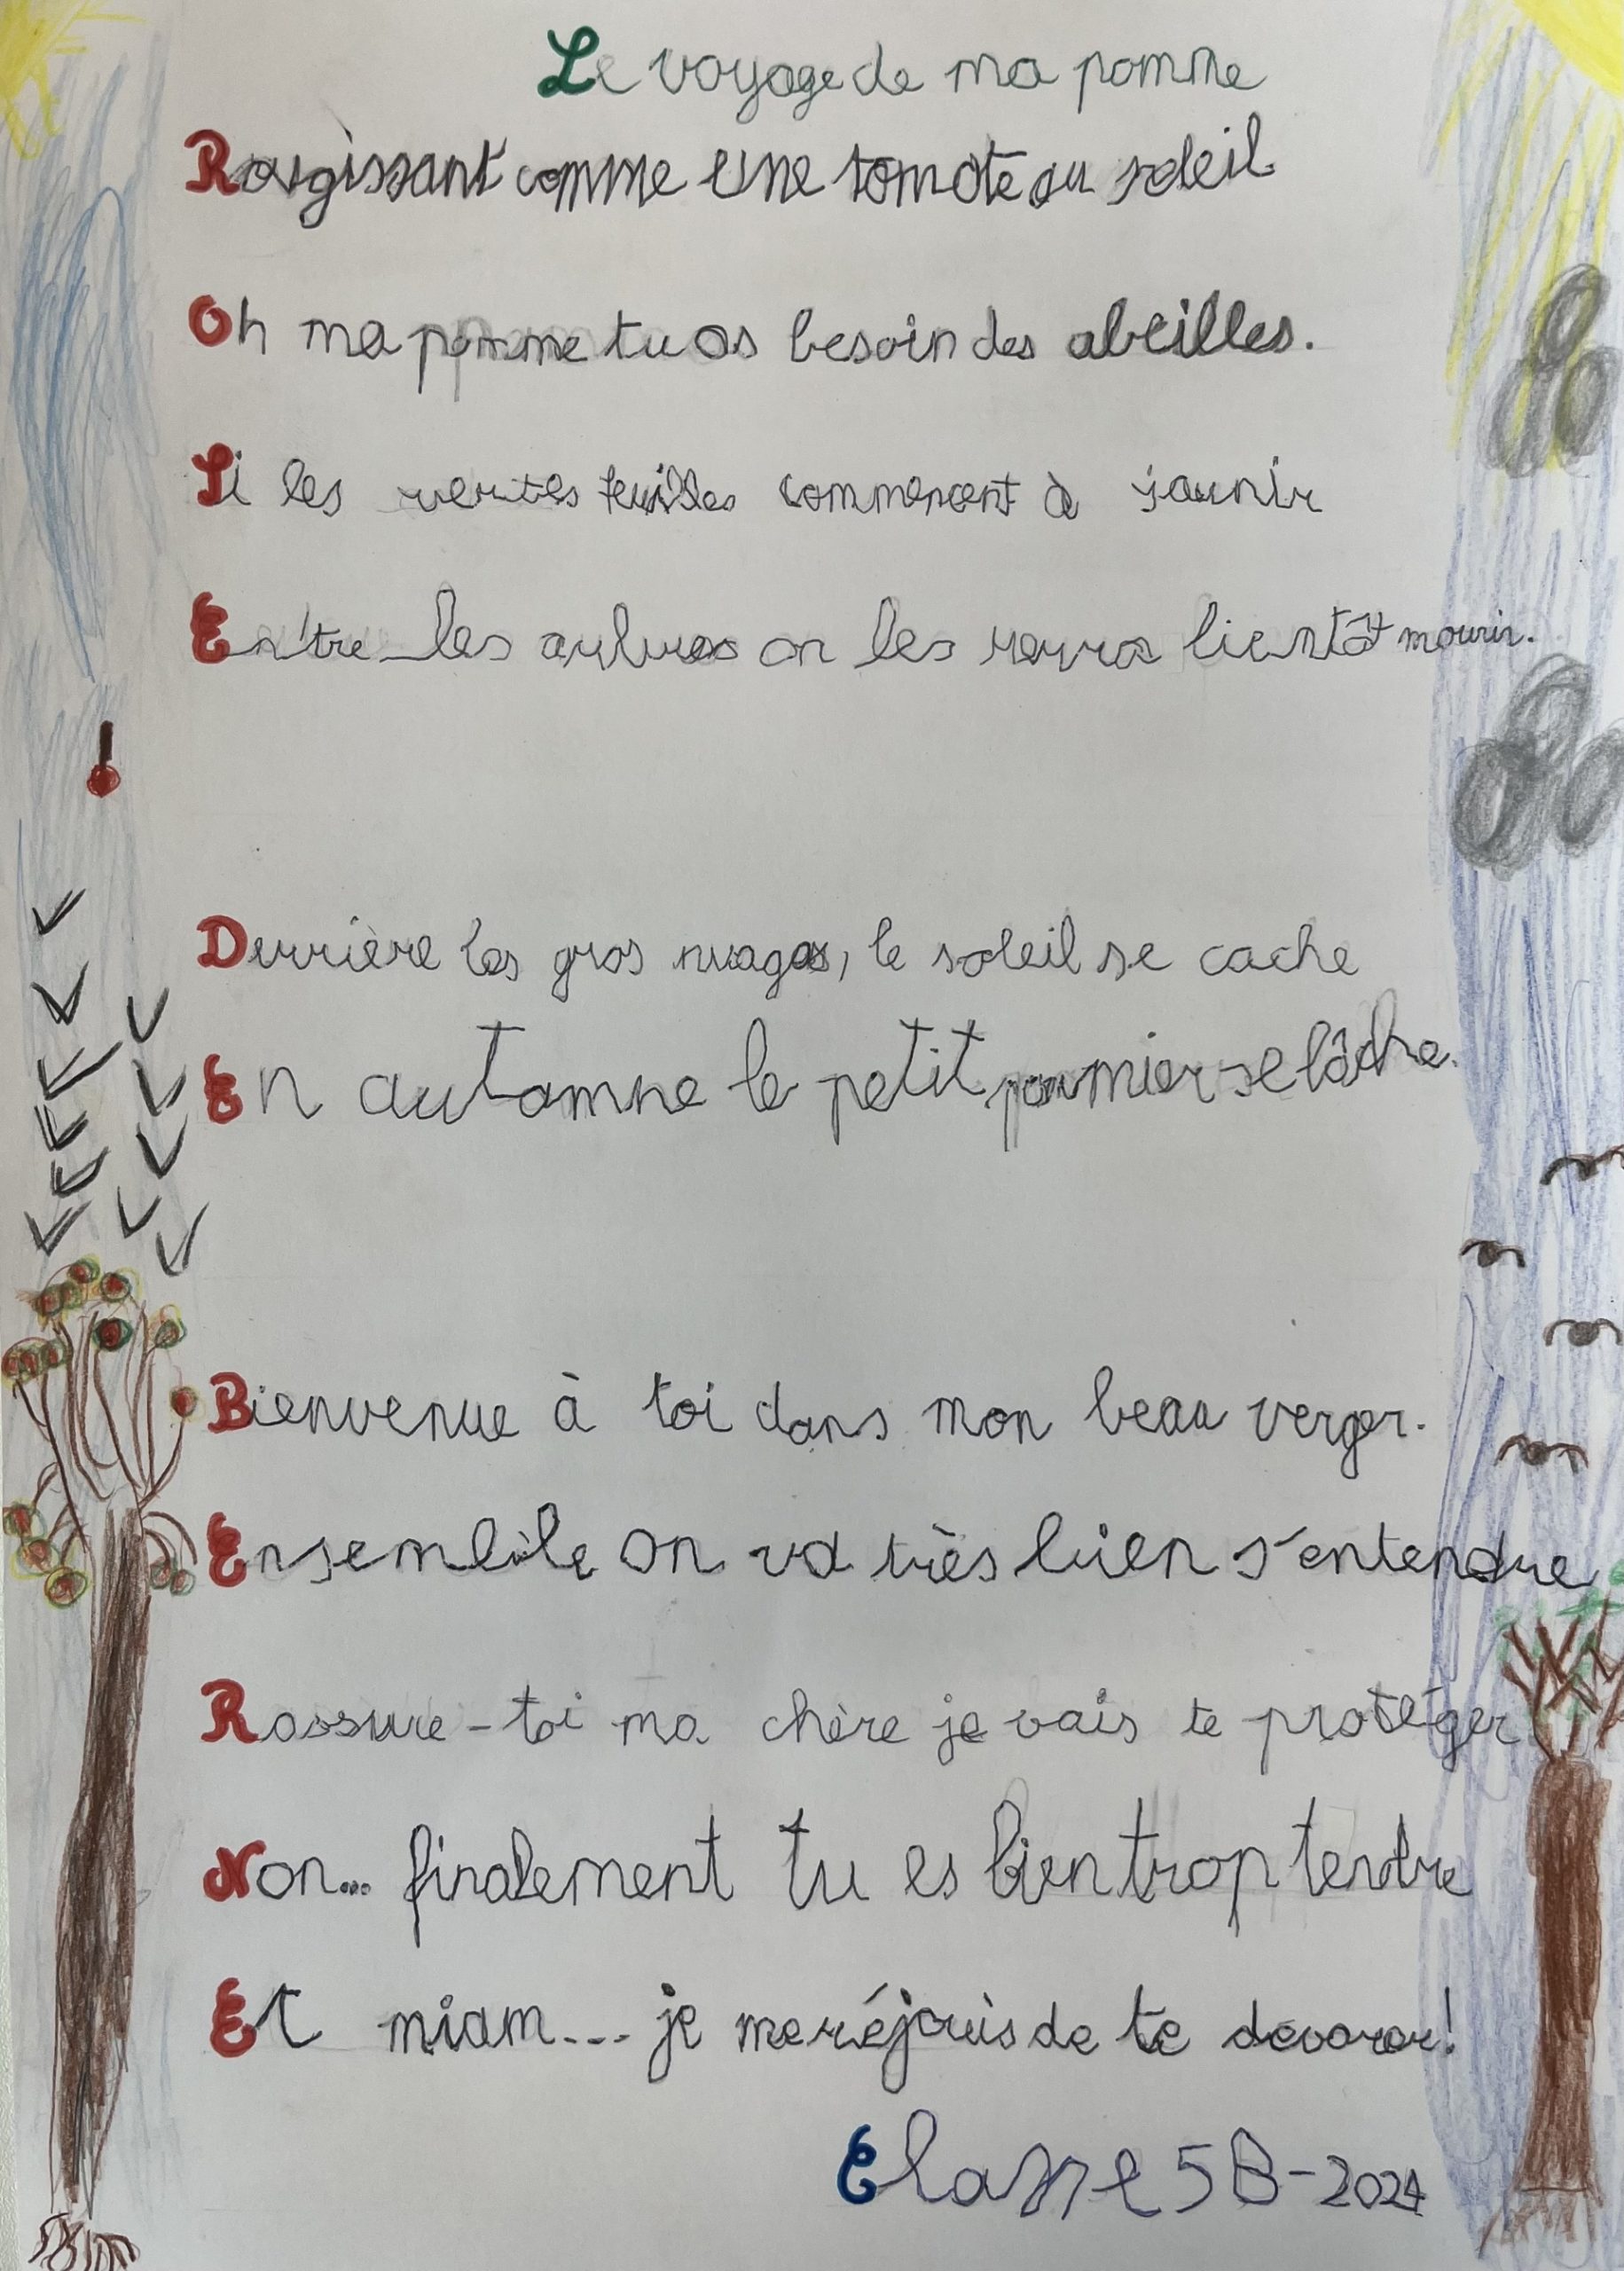 Le voyage de ma pomme
Rougissant comme une tomate au soleil
Oh ma pomme tu as besoin des abeilles.
Si les vertes feuilles commencent à jaunir
Entre les arbres on les verra bientôt mourir.
Derrière les gros nuages, le soleil se cache
En automne le petit pommier se lâche.
Bienvenue à toi dans mon beau verger.
Ensemble on va très bien s'entendre
Rassure-toi ma chère je vais te protéger
Non... finalement tu es bien trop tendre
Et miam... je me réjouis de te dévorer!
Classe 5B-2024